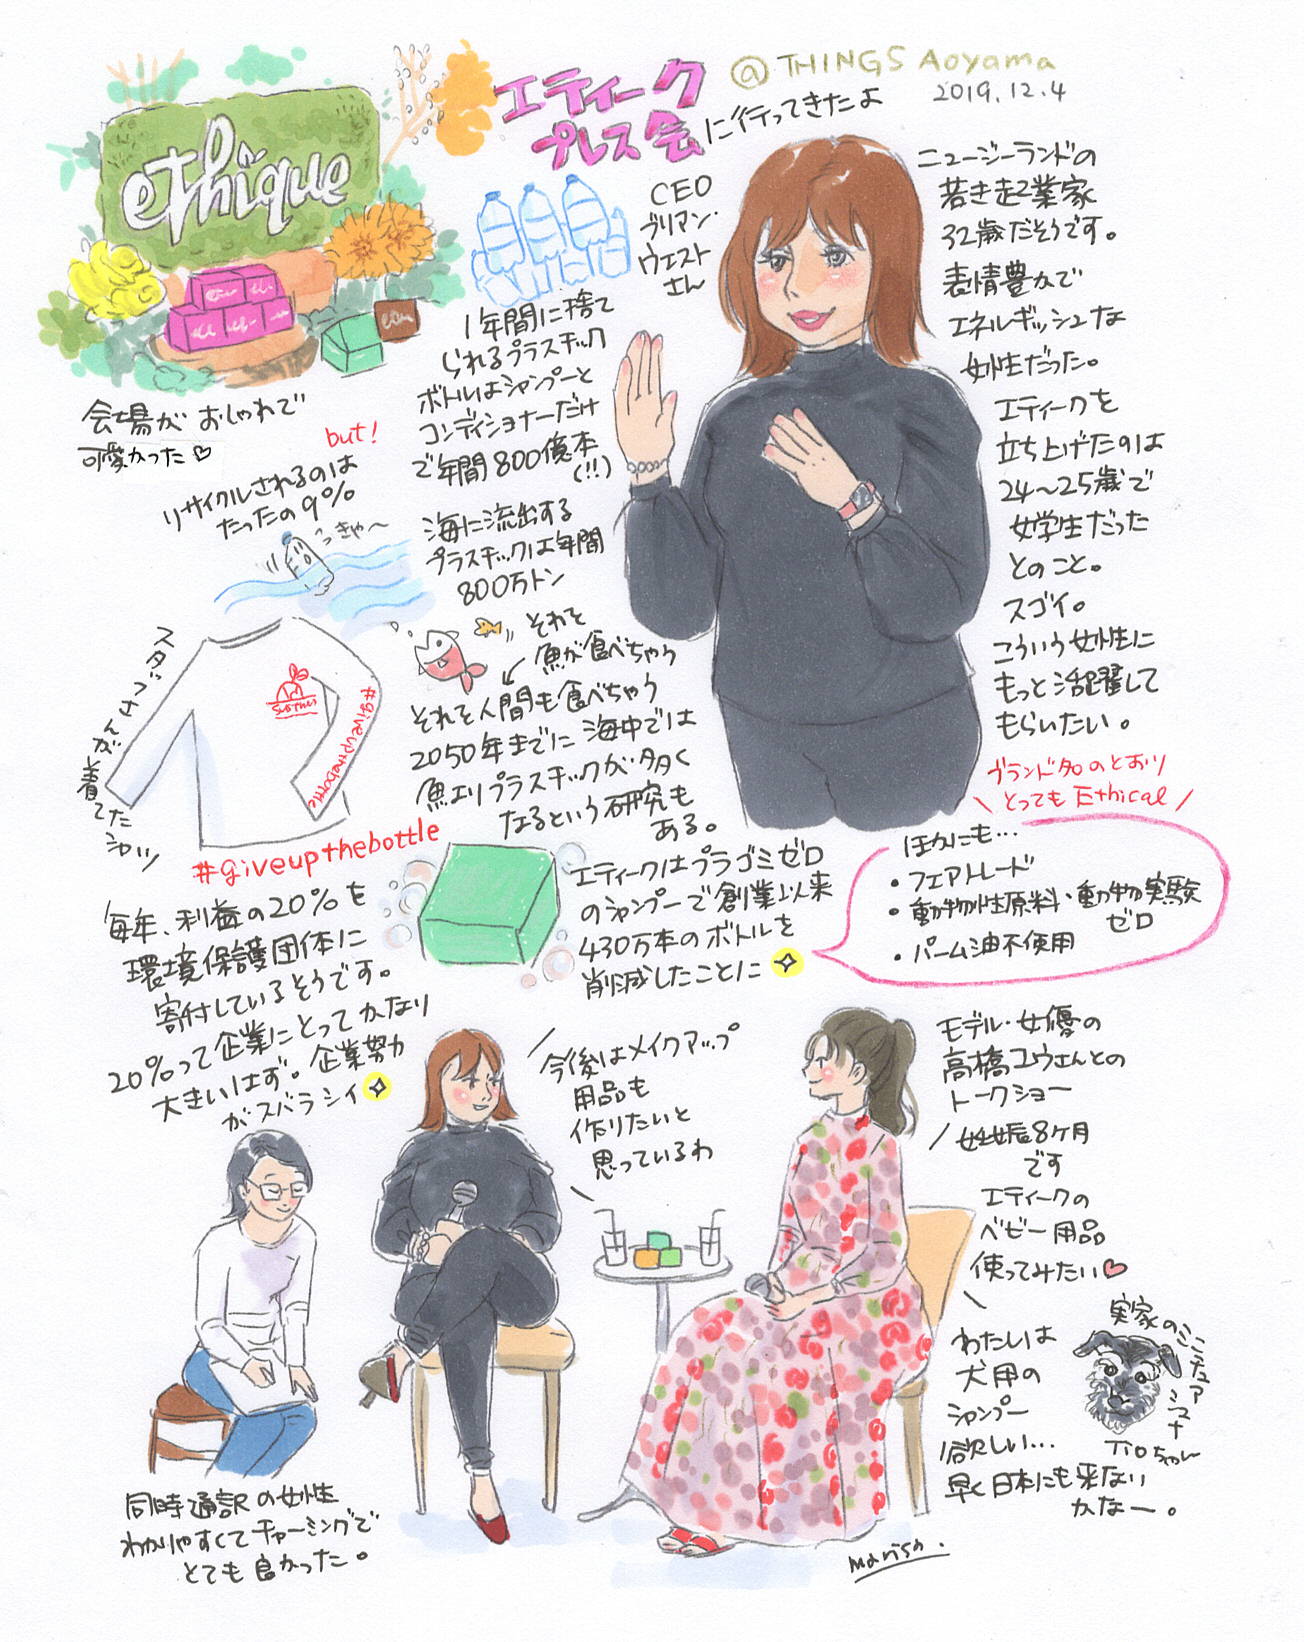 エティーク
プレス会に行ってきたよ
@THINGS Aoyama
2019.12.4
ethique
会場がおしゃれで
可愛かった♡
CEO
ブリアン・
ウエスト
さん
ニュージーランドの
若き起業家
32歳だそうです。
表情豊かで
エネルギッシュな
女性だった。
エティークを
立ち上げたのは
24〜25歳で
女学生だった
とのこと。
スゴイ。
こういう女性に
もっと活躍して
もらいたい。
1年間に捨て
られるプラスチック
ボトルはシャンプーと
コンディショナーだけ
で年間800億本
(!!)
but!
リサイクルされるのは
たったの9%
きゃ〜
海に流出する
プラスチックは年間
800万トン
それを
魚が食べちゃう
それを人間も食べちゃう
2050年までに海中では
魚よりプラスチックが多く
なるという研究も
ある。
スタッフさんが着てたシャツ
#giveupthebottle
#giveupthebottle
毎年、利益の20%を
環境保護団体に
寄付しているそうです。
20%って企業にとってかなり
大きいはず。企業努力
がスバラシイ
エティークはプラゴミゼロ
のシャンプーで創業以来
430万本のボトルを
削減したことに
ブランド名のとおり
\とってもEthical/
ほかにも…
・フェアトレード
・動物性原料・動物実験
ゼロ
・パーム油不使用
今後はメイクアップ
用品も
作りたいと
思っているわ
モデル・女優の
高橋ユウさんとの
トークショー
妊娠8ヶ月
です
エティークの
ベビー用品
使ってみたい♡
わたしは
犬用の
シャンプー
欲しい…
早く日本にも来ない
かなー。
実家のミニチュアシュナ
Tioちゃん
同時通訳の女性
わかりやすくてチャーミングで
とても良かった。
marisa.